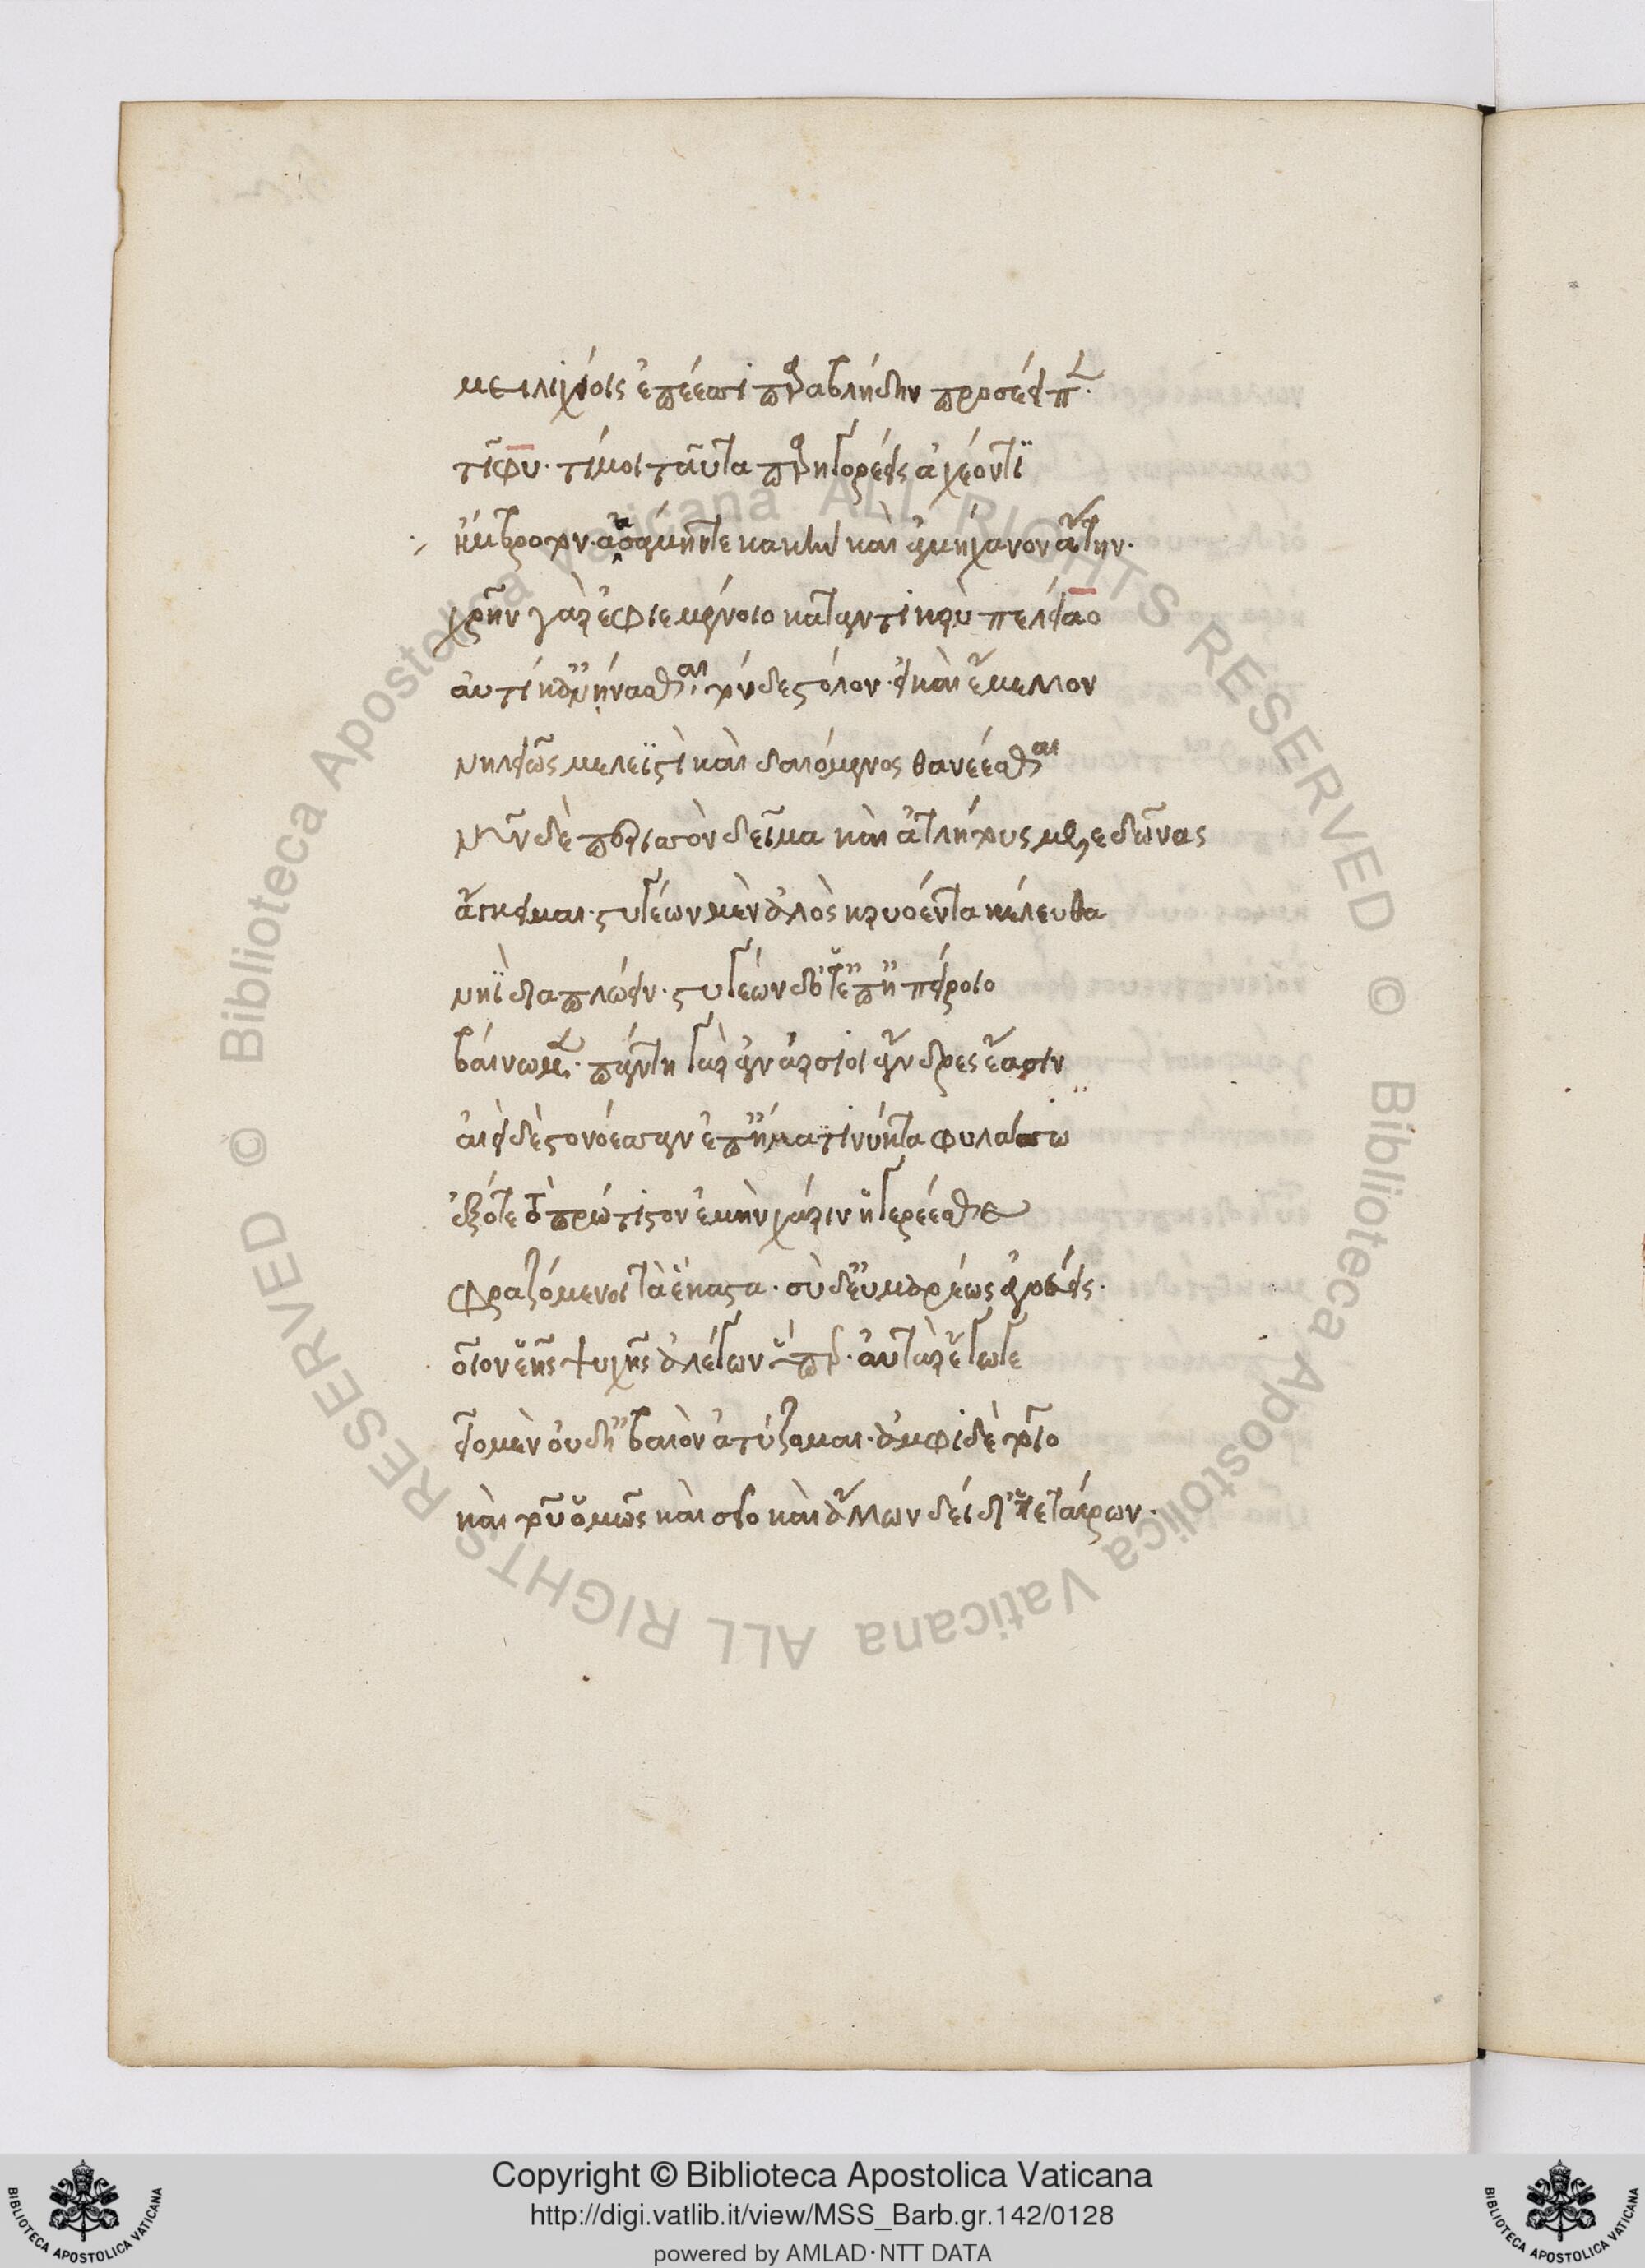 μειλιχίοις ἐπέεσσι παραβλήδην προσέειπεν·
τῖφυ· τί μοι ταῦτα παρηγορέεις ἀχέοντϊ
ἤμβροτον· ἀασάμην τε κακὴν καὶ ἀμήχανον ἄτην·
χρῆν γὰρ ἐφιεμένοιο καταντικρὺ πελίαο
αὐτίκ' ἀνήνασθαι τόνδε στόλον· εἰ καὶ ἔμελλον
νηλειῶς μελεϊστὶ καὶ δαιόμενος θανέεσθαι
νῦν δὲ περισσὸν δεῖμα καὶ ἀτλήτους μελεδῶνας
ἄγκειμαι· στυγέων μὲν ἁλὸς κρυόεντα κέλευθα
νηῒ διαπλώειν· στυγέων δ' ὅτ' ἐπ' ἠπείροιο
βαίνωμεν· πάντη γὰρ ἀνάρσιοι ἄνδρες ἔασιν
αἰεὶ δὲ στονόεσσαν ἐπ' ἤματι νύκτα φυλάσσω
ἐξότε τὸ πρώτιστον ἐμὴν χάριν ἠγερέεσθε
φραζόμενοι τὰ ἕκαστα· σὺ δ' εὐμαρέως ἀγορεύεις·
οἶον ἑῆς ψυχῆς ἀλέγων ὕπερ· αὐτὰρ ἔγωγε
εἷο μὲν οὐδ' ἠβαιὸν ἀτύζομαι· ἀμφὶ δὲ τοῖο
καὶ τοῦ ὁμῶς καὶ σεῖο καὶ ἄλλων δείδι' ἑταίρων·
Copyright © Biblioteca Apostolica Vaticana
http://digi.vatlib.it/view/MSS_Barb.gr.142/0128
powered by AMLAD·NTT DATA